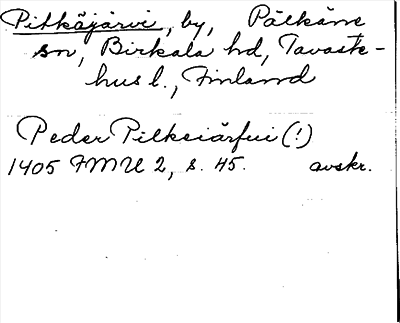 Pitkäjärvi, by, Pälkäne
sn, Birkala hd, Tavaste-
hus l., Finland
Peder Pilkeiärfui (!)
1405 FMU 2, s. 45. avskr.